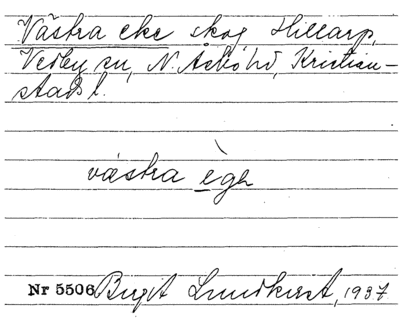 Västra eke skog Hillarp,
Vedby sn, N. Åsbo hd, Kristian-
stads l.
västra ègh
Nr 5506 Birgit Lundkvist, 1937